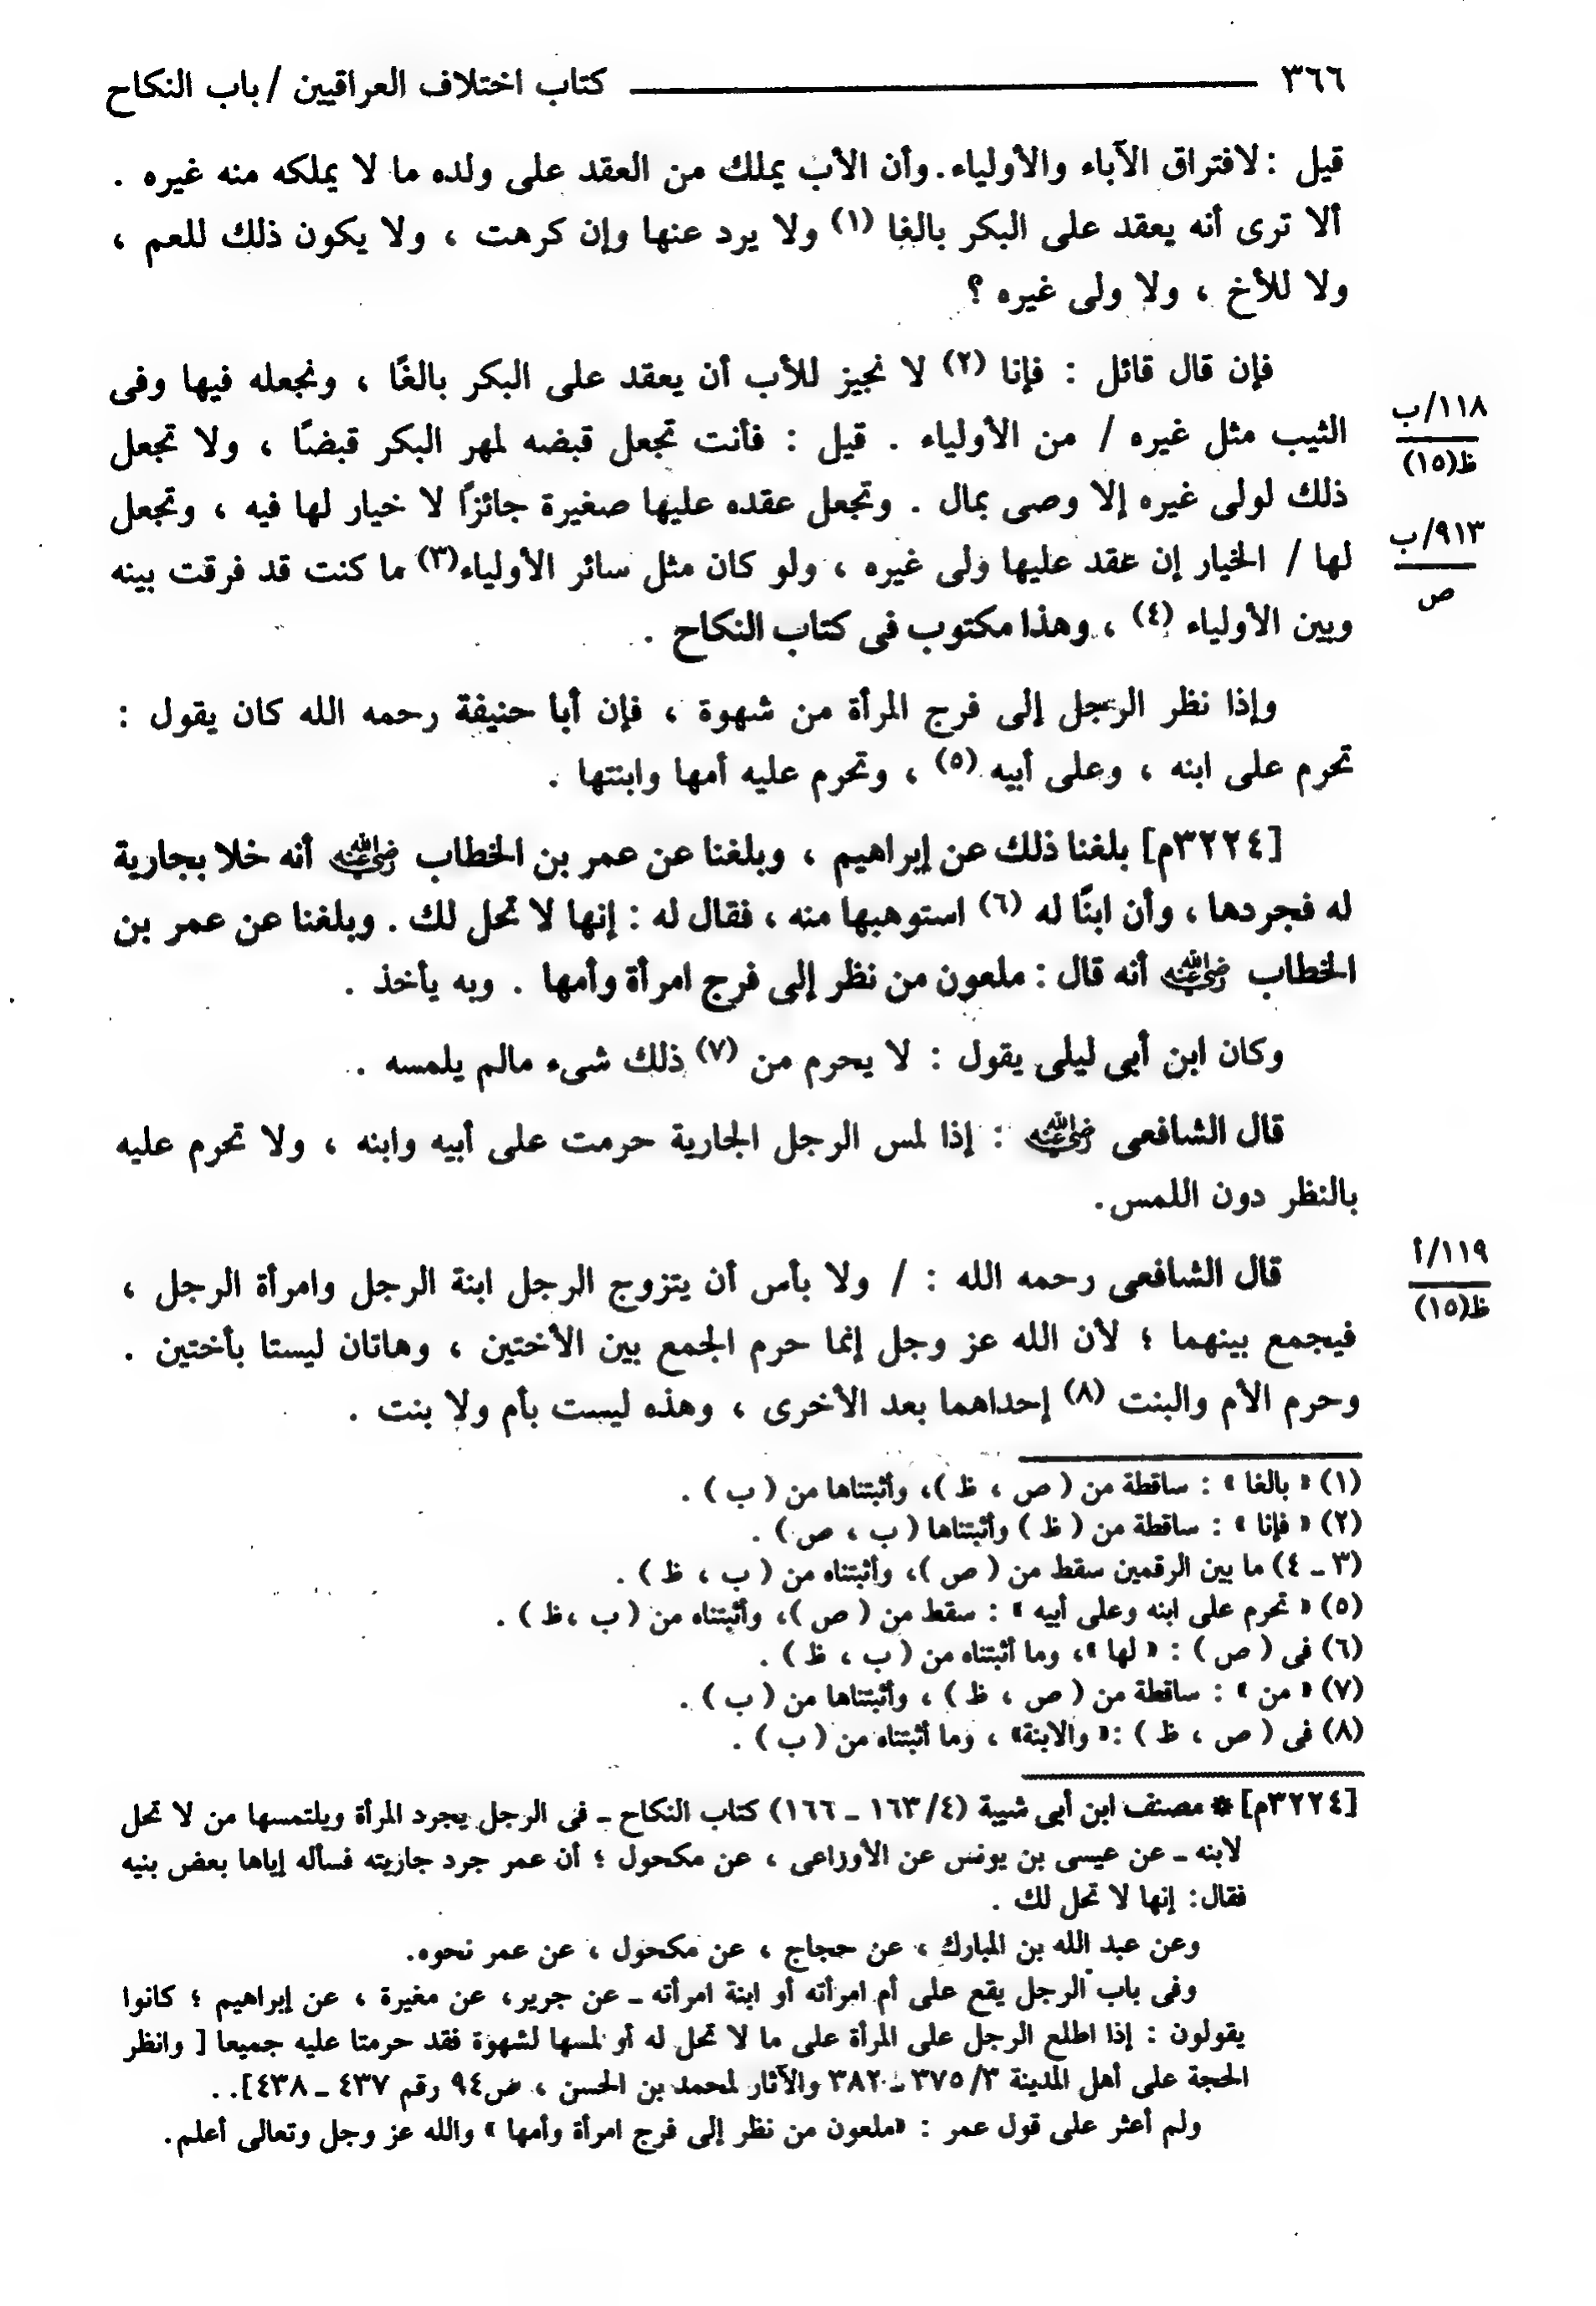 ٣٦٦ كتاب اختلاف العراقيين / باب النكاح
قيل : لافتراق الآباء والأولياء. وأن الأب يملك من العقد على ولده ما لا يملكه منه غيره .
ألا ترى أنه يعقد على البكر بالغا (١) ولا يرد عنها وإن كرهت ، ولا يكون ذلك للعم ،
ولا للأخ ، ولا ولى غيره ؟
فإن قال قائل : فإنا (٢) لا نجيز للأب أن يعقد على البكر بالغًا ، ونجعله فيها وفى
١١٨/ب
الثيب مثل غيره / من الأولياء . قيل : فأنت تجعل قبضه لمهر البكر قبضًا ، ولا تجعل
ظ(١٥)
ذلك لولى غيره إلا وصى بمال . وتجعل عقده عليها صغيرة جائزًا لا خيار لها فيه ، وتجعل
٩١٣/ب
لها / الخيار إن عقد عليها ولى غيره ، ولو كان مثل سائر الأولياء(٣) ما كنت قد فرقت بينه
ص
وبين الأولياء (٤) ، وهذا مكتوب فى كتاب النكاح .
وإذا نظر الرجل إلى فرج المرأة من شهوة ، فإن أبا حنيفة رحمه الله كان يقول :
تحرم على ابنه ، وعلى أبيه (٥) ، وتحرم عليه أمها وابنتها .
[٣٢٢٤م] بلغنا ذلك عن إبراهيم ، وبلغنا عن عمر بن الخطاب رضي الله عنه أنه خلا بجارية
له فجردها ، وأن ابنًا له (٦) استوهبها منه ، فقال له : إنها لا تحل لك . وبلغنا عن عمر بن
الخطاب رضي الله عنه أنه قال : ملعون من نظر إلى فرج امرأة وأمها . وبه يأخذ .
وكان ابن أبى ليلى يقول : لا يحرم من (٧) ذلك شىء مالم يلمسه .
قال الشافعى رضي الله عنه : إذا لمس الرجل الجارية حرمت على أبيه وابنه ، ولا تحرم عليه
بالنظر دون اللمس.
١١٩/أ
قال الشافعى رحمه الله : / ولا بأس أن يتزوج الرجل ابنة الرجل وامرأة الرجل ،
ظ(١٥)
فيجمع بينهما ؛ لأن الله عز وجل إنما حرم الجمع بين الأختين ، وهاتان ليستا بأختين .
وحرم الأم والبنت (٨) إحداهما بعد الأخرى ، وهذه ليست بأم ولا بنت .
(١) « بالغا » : ساقطة من ( ص ، ظ )، وأثبتناها من ( ب ) .
(٢) « فإنا » : ساقطة من ( ظ ) وأثبتناها ( ب ، ص ) .
(٣ ـ ٤) ما بين الرقمين سقط من ( ص )، وأثبتناه من ( ب ، ظ ) .
(٥) « تحرم على ابنه وعلى أبيه » : سقط من ( ص )، وأثبتناه من ( ب ،ظ ) .
(٦) فى ( ص ) : « لها »، وما أثبتناه من ( ب ، ظ ) .
(٧) « من » : ساقطة من ( ص ، ظ ) ، وأثبتناها من ( ب ) .
(٨) فى ( ص ، ظ ) :« والابنة» ، وما أثبتناه من ( ب ) .
[٣٢٢٤م] * مصنف ابن أبى شيبة (٤/ ١٦٣ ـ ١٦٦) كتاب النكاح ـ فى الرجل يجرد المرأة ويلتمسها من لا تحل
لابنه ـ عن عيسى بن يونس عن الأوزاعى ، عن مكحول ؛ أن عمر جرد جاريته فسأله إياها بعض بنيه
فقال: إنها لا تحل لك .
وعن عبد الله بن المبارك ، عن حجاج ، عن مكحول ، عن عمر نحوه.
وفى باب الرجل يقع على أم امرأته أو ابنة امرأته ـ عن جرير، عن مغيرة ، عن إبراهيم ؛ كانوا
يقولون : إذا اطلع الرجل على المرأة على ما لا تحل له أو لمسها لشهوة فقد حرمتا عليه جميعا [ وانظر
الحجة على أهل المدينة ٣/ ٣٧٥ ـ ٣٨٢ والآثار لمحمد بن الحسن ، ص٩٤ رقم ٤٣٧ ـ ٤٣٨]. .
ولم أعثر على قول عمر : «ملعون من نظر إلى فرج امرأة وأمها » والله عز وجل وتعالى أعلم.